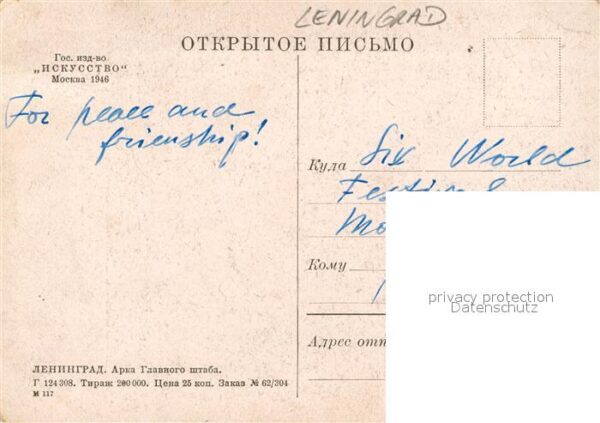 LENINGRAD
ОТКРЫТОЕ ПИСЬМО
Гос. изд-во
„ИСКУССТВО“
Москва 1946
For peace and
frienship!
Куда Six World
Кому
Адрес отп
privacy protection
Datenschutz
ЛЕНИНГРАД. Арка Главного штаба.
Г 124308. Тираж 200 000. Цена 25 коп. Заказ № 62/304
М 117